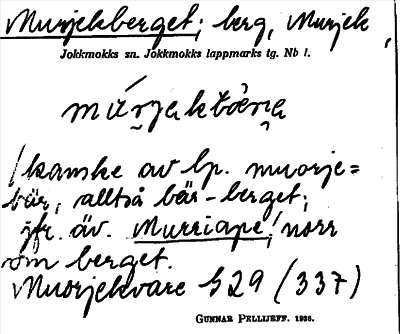 Murjekberget; berg, Murjek,
Jokkmokks sn. Jokkmokks lappmarks tg. Nb l.
/kanske av lp. muorje=
bär, alltså bär-berget;
jfr. äv. Murriape,/norr
om berget.
Muorjekvare G29 (337)
GUNNAR PELLIJEFF. 1938.